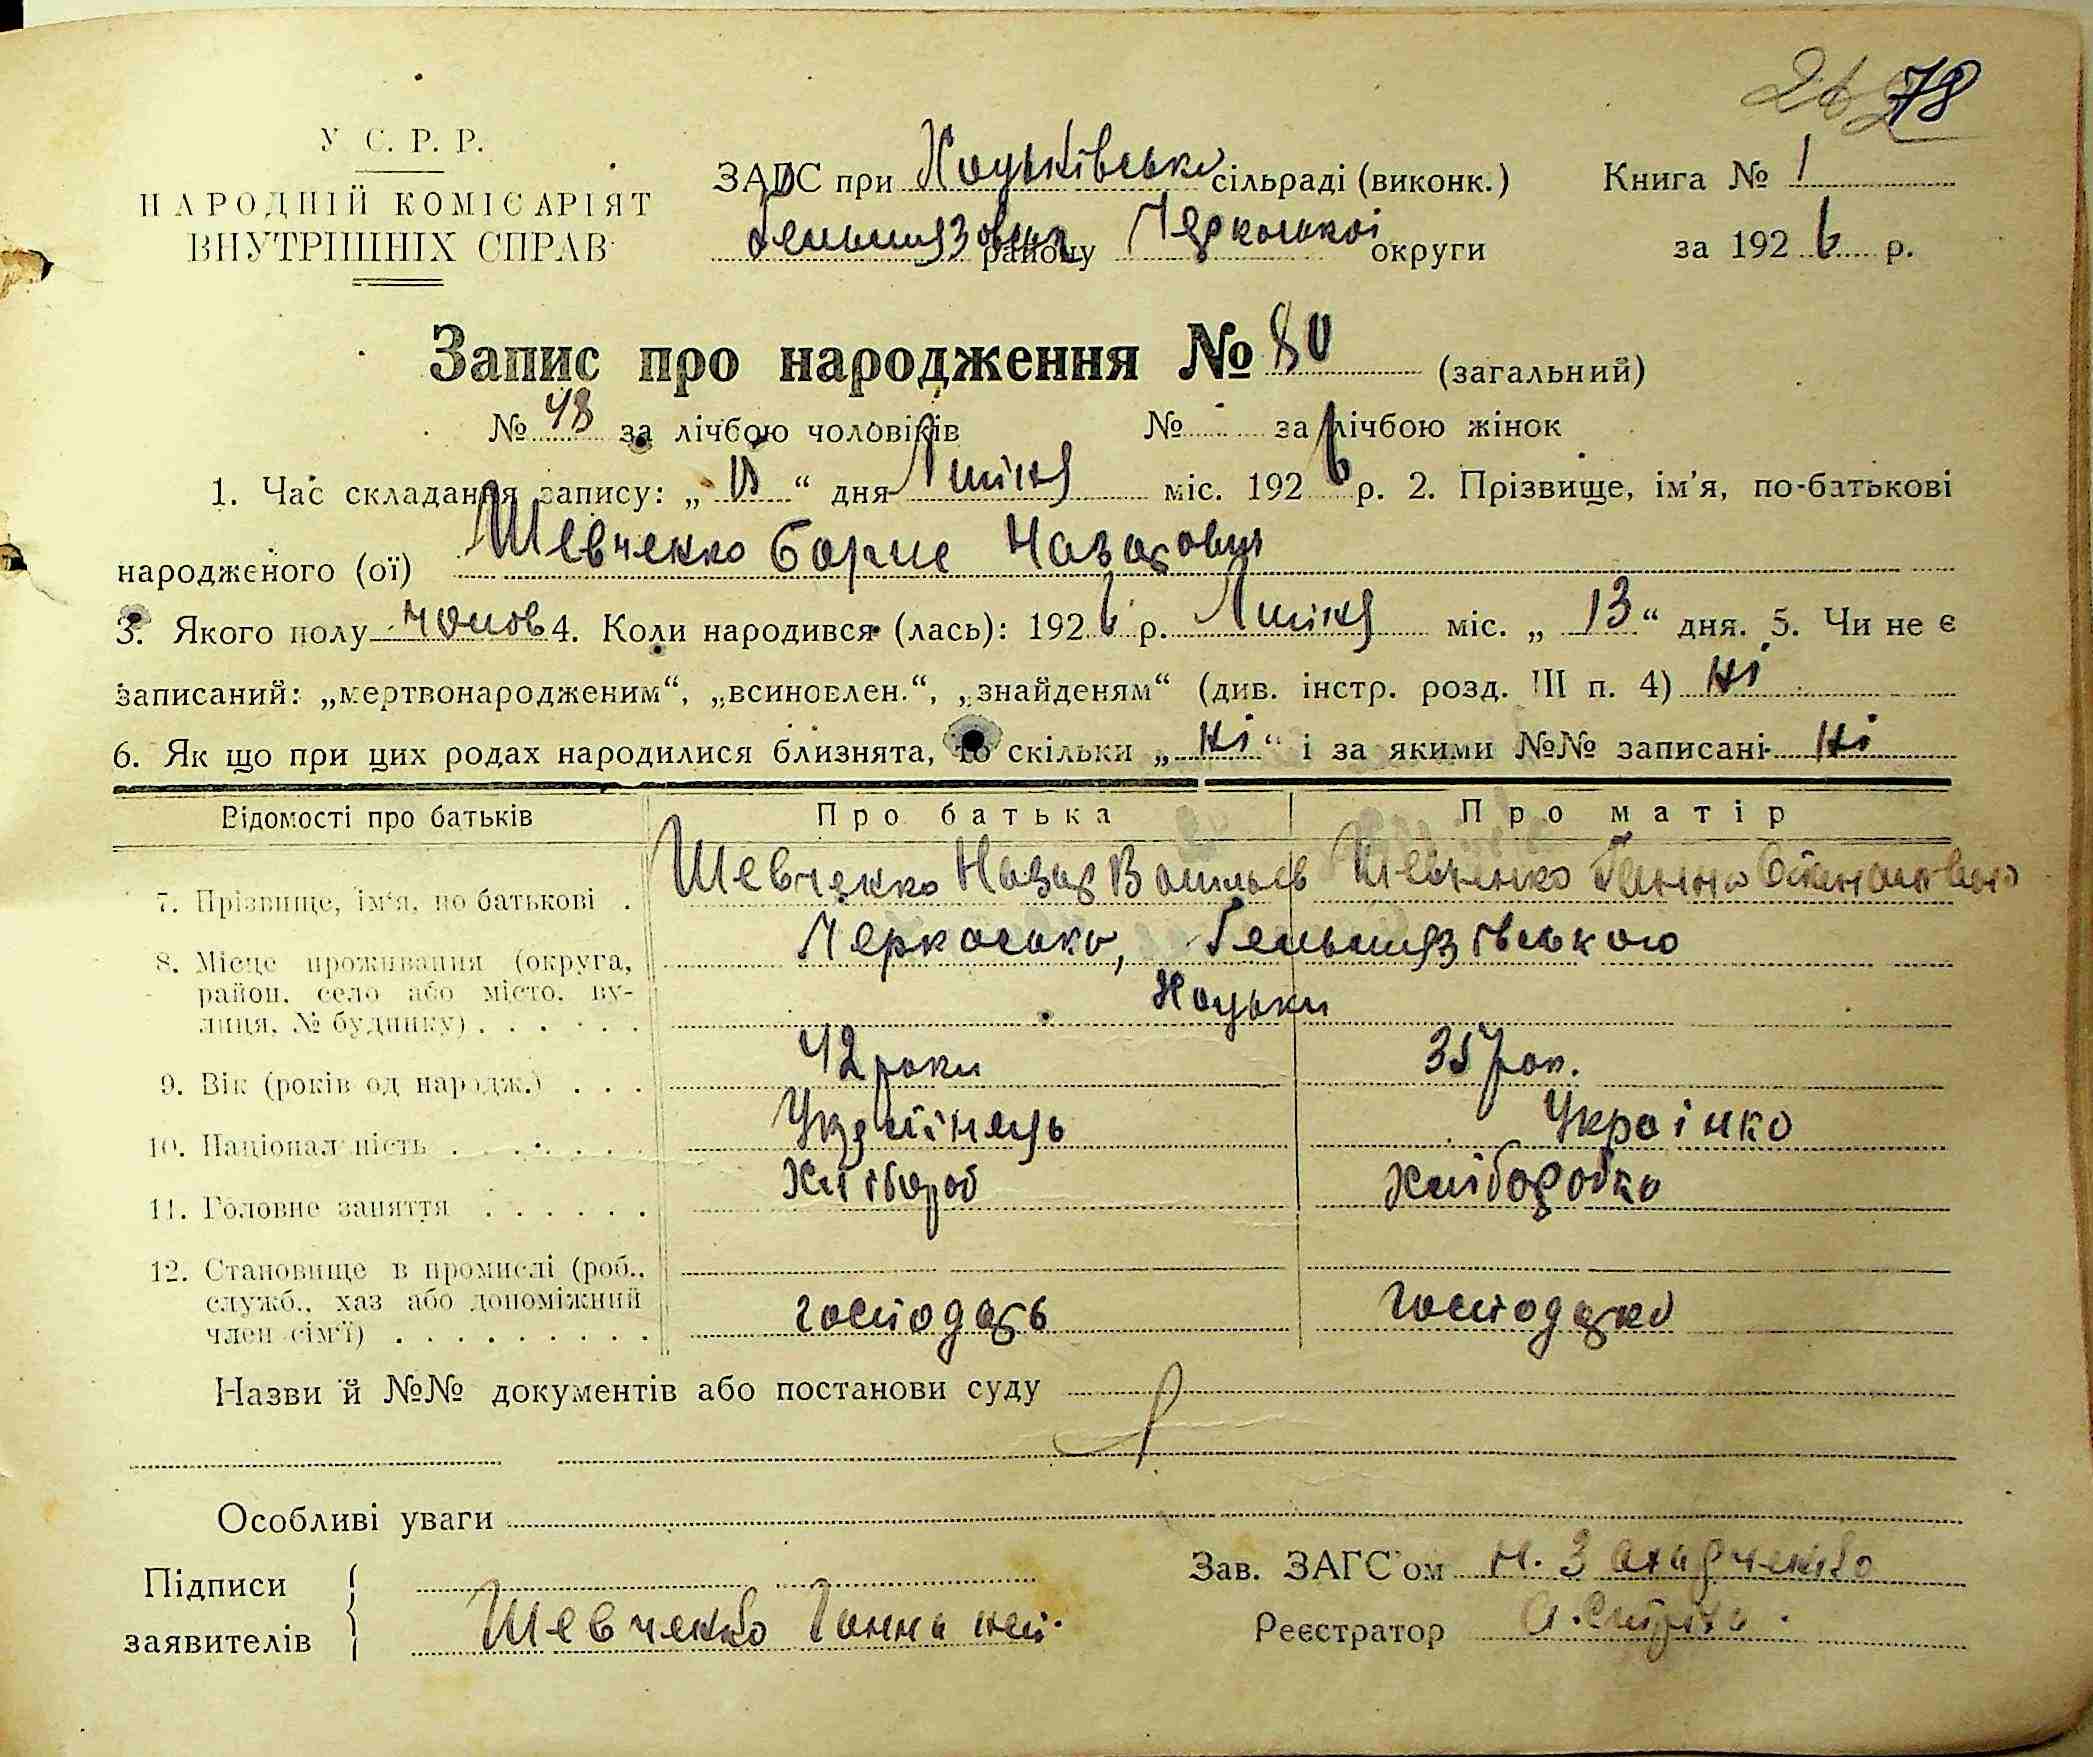 78
У С. Р. Р.
НАРОДНІЙ КОМІСАРІЯТ
ВНУТРІШНІХ СПРАВ
ЗАГС при Хоцьківській сільраді (виконк.) Книга № 1
району Черкаської округи за 1926 р.
Запис про народження № 80 (загальний)
№ 48 за лічбою чоловіків № - за лічбою жінок
1. Час складання запису: „ “ дня Липня міс. 1926 р. 2. Прізвище, ім'я, по-батькові
народженого (ої) Шевченко Борис Назарович
3. Якого полу чолов 4. Коли народився (лась): 1926 р. Липня міс. „13“ дня. 5. Чи не є
записаний: „мертвонародженим“, „всиновлен.“, „знайденям“ (див. інстр. розд. III п. 4) ні
6. Як що при цих родах народилися близнята, то скільки „ні“ і за якими №№ записані ні
Відомості про батьків Про батька Про матір
7. Прізвище, ім'я, по батькові . Шевченко Назар Васильов Шевченко Ганна
8. Місце проживання (округа, Черкаська, Гельмязівського
район, село або місто, ву- Хоцьки
лиця, № будинку) . . . . . .
9. Вік (років од народж.) . . . 42 роки 35 рок.
10. Національність . . . . . . Українець Українка
11. Головне заняття . . . . . . Хлібороб Хліборобка
12. Становище в промислі (роб.,
служб., хаз або допоміжний
член сім'ї) . . . . . . . . . господарь господарка
Назви й №№ документів або постанови суду
Особливі уваги
Підписи Зав. ЗАГС'ом
заявителів Шевченко Ганна неп. Реєстратор